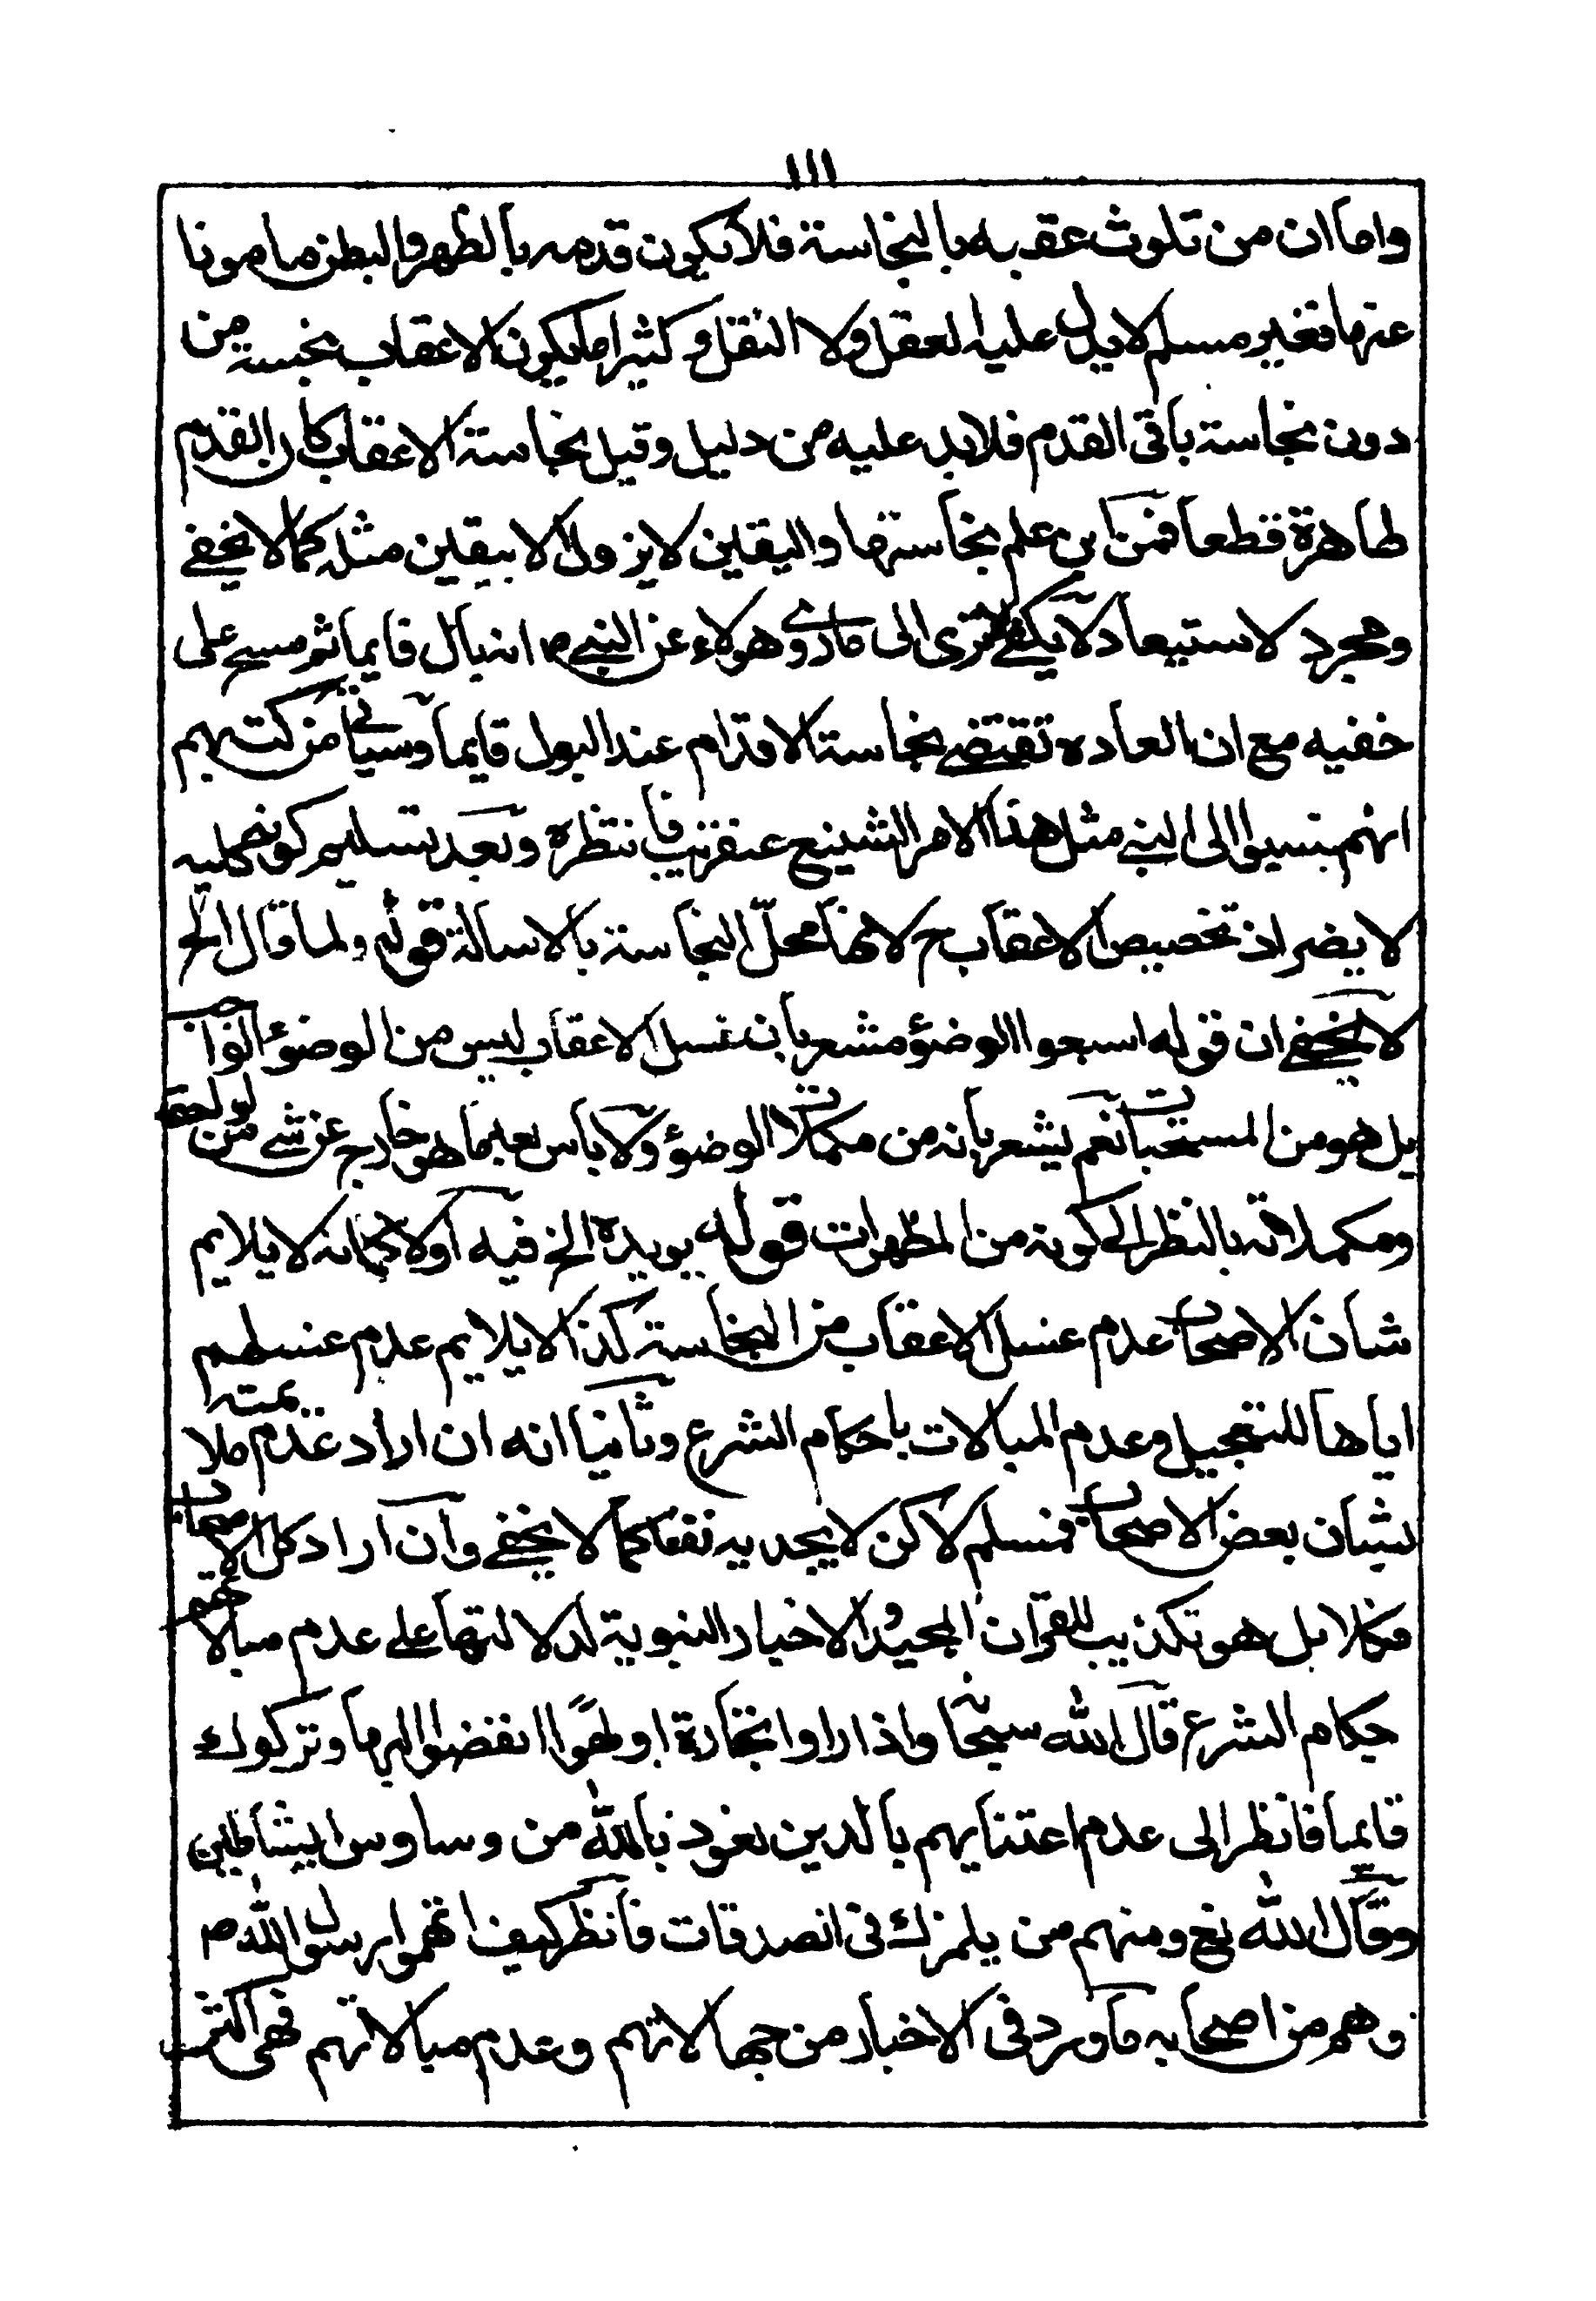 ١١١
واما ان من تلوث عقبه بالنجاسة فلا يكون قدمه بالظهر والبطن مامونا
عنها فغير مسلم لا يدل عليه العقل ولا النقل و كثيرا ما يكون الاعقاب نجسة من
دون نجاسة باقى القدم فلا بد عليه من دليل وقبل نجاسة الاعقاب كان القدم
طاهرة قطعا فمن اين علم نجاستها واليقين لا يزول الا بيقين مثله كما لا يخفى
ومجرد لاستبعاد لا يكفى الا ترى الى ما روى هولاء عن النبى ص انه بال قايما ثم مسح على
خفيه مع ان العاده تقتضى نجاسة الاقدام عند البول قايما وسياتى من كتبهم
انهم ينسبوا الى النبى مثل هذا الامر الشنيع عنقريب فانتظره وبعد تسليم كونه كليه
لا يضر اذ تخصيص الاعقاب ح لانها محلّ النجاسة بالاسالة قوله ولما قال الخ
لا يخفى ان قوله اسبغوا الوضؤ مشعر بان غسل الاعقاب ليس من لوضوء
بل هو من المستحبات نعم يشعر بانه من مكملات الوضؤ ولا باس بعد ما هو خارج عن شئ من
ومكملاته بالنظر الى كونه من المطهرات قوله يويده الخ فيه اولا كما انه لا يلايم
شان الاصحاب عدم غسل الاعقاب من النجاسة كذا لا يلايم عدم غسلهم
اياها للتعجيل وعدم المبالات باحكام الشرع وثانيا انه ان اراد عدم ملا يمته
بشان بعض الاصحاب فمسلم لاكن لا يجديه نفعا كما لا يخفى وان اراد كل الاصحاب
فكلا بل هو تكذيب للقران المجيد والاخبار النبوية لدلالتها على عدم مبالاتهم
حكام الشرع قال الله سبحانه واذا راوا تجارة او لهوا انفضوا اليها وتركوك
قايما فانظر الى عدم اعتنايهم بالدين نعوذ بالله من وساوس الشياطين
وقال الله تع ومنهم من يلمزك فى الصدقات فانظر كيف اتهموا رسول الله ص
وهم من اصحابه ما ورد فى الاخبار من جهالاتهم وعدم مبالاتهم فهى اكثر